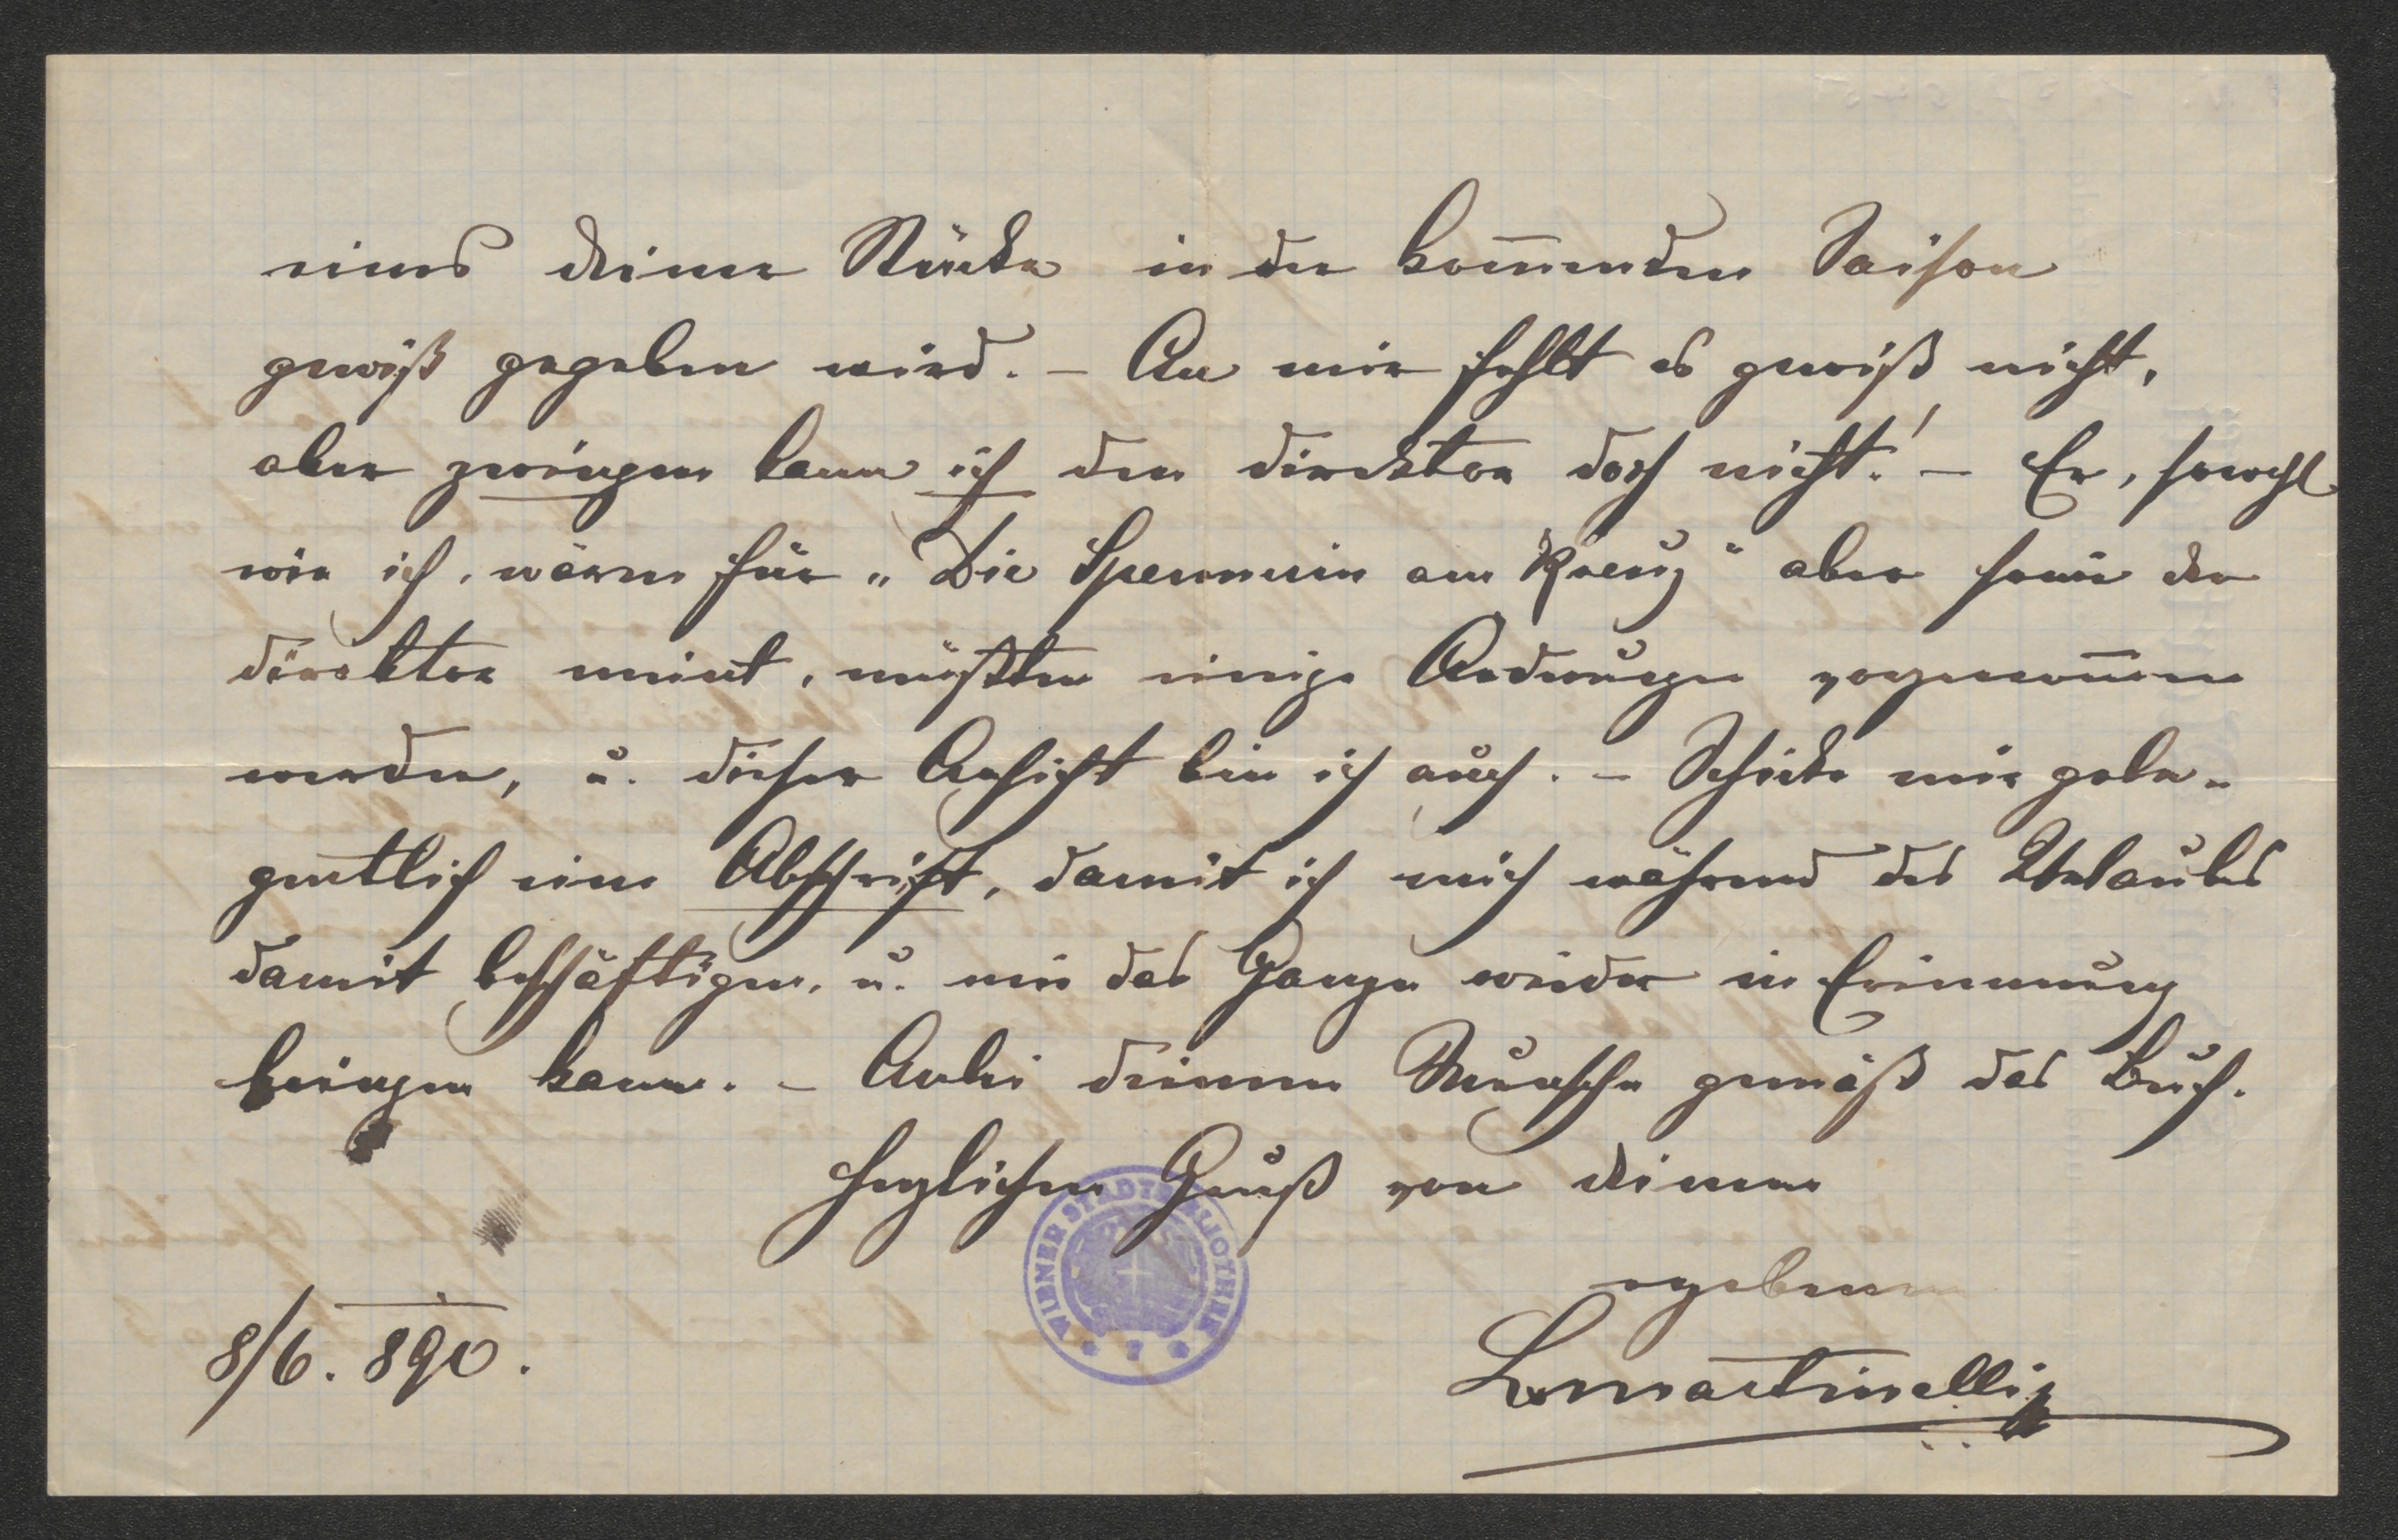 eines deiner Stücke in der kom̅enden Saison
gewiß gegeben wird. – An mir fehlt es gewiß nicht,
aber zwingen kann ich den Direktor doch nicht! – Er, sowohl
wie ich, wären für „Die Spinnerin am Kreuz“ aber sowie der
Direktor meint, müßten einige Änderungen vorgenom̅en
werden, u. dieser Ansicht bin ich auch. – Schicke mir gele-
gentlich eine Abschrift, damit ich mich während des Urlaubes
damit beschäftigen, u. mir das Ganze wieder in Erinnerung
bringen kann. – Anbei deinem Wunsche gemäß das Buch.
Herzlichen Gruß von deinem
ergebenen
8/6. 890.
LMartinelli
WIENER STADTBIBLIOTHEK